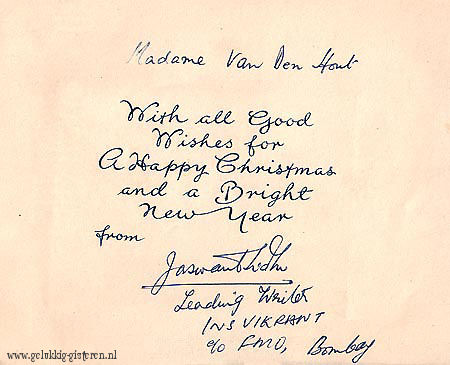 Madame Van Den Hout
With all Good
Wishes for
A Happy Christmas
and a Bright
New Year
from
Leading Writer
INS VIKRANT
c/o FMO, Bombay
www.gelukkig-gisteren.nl